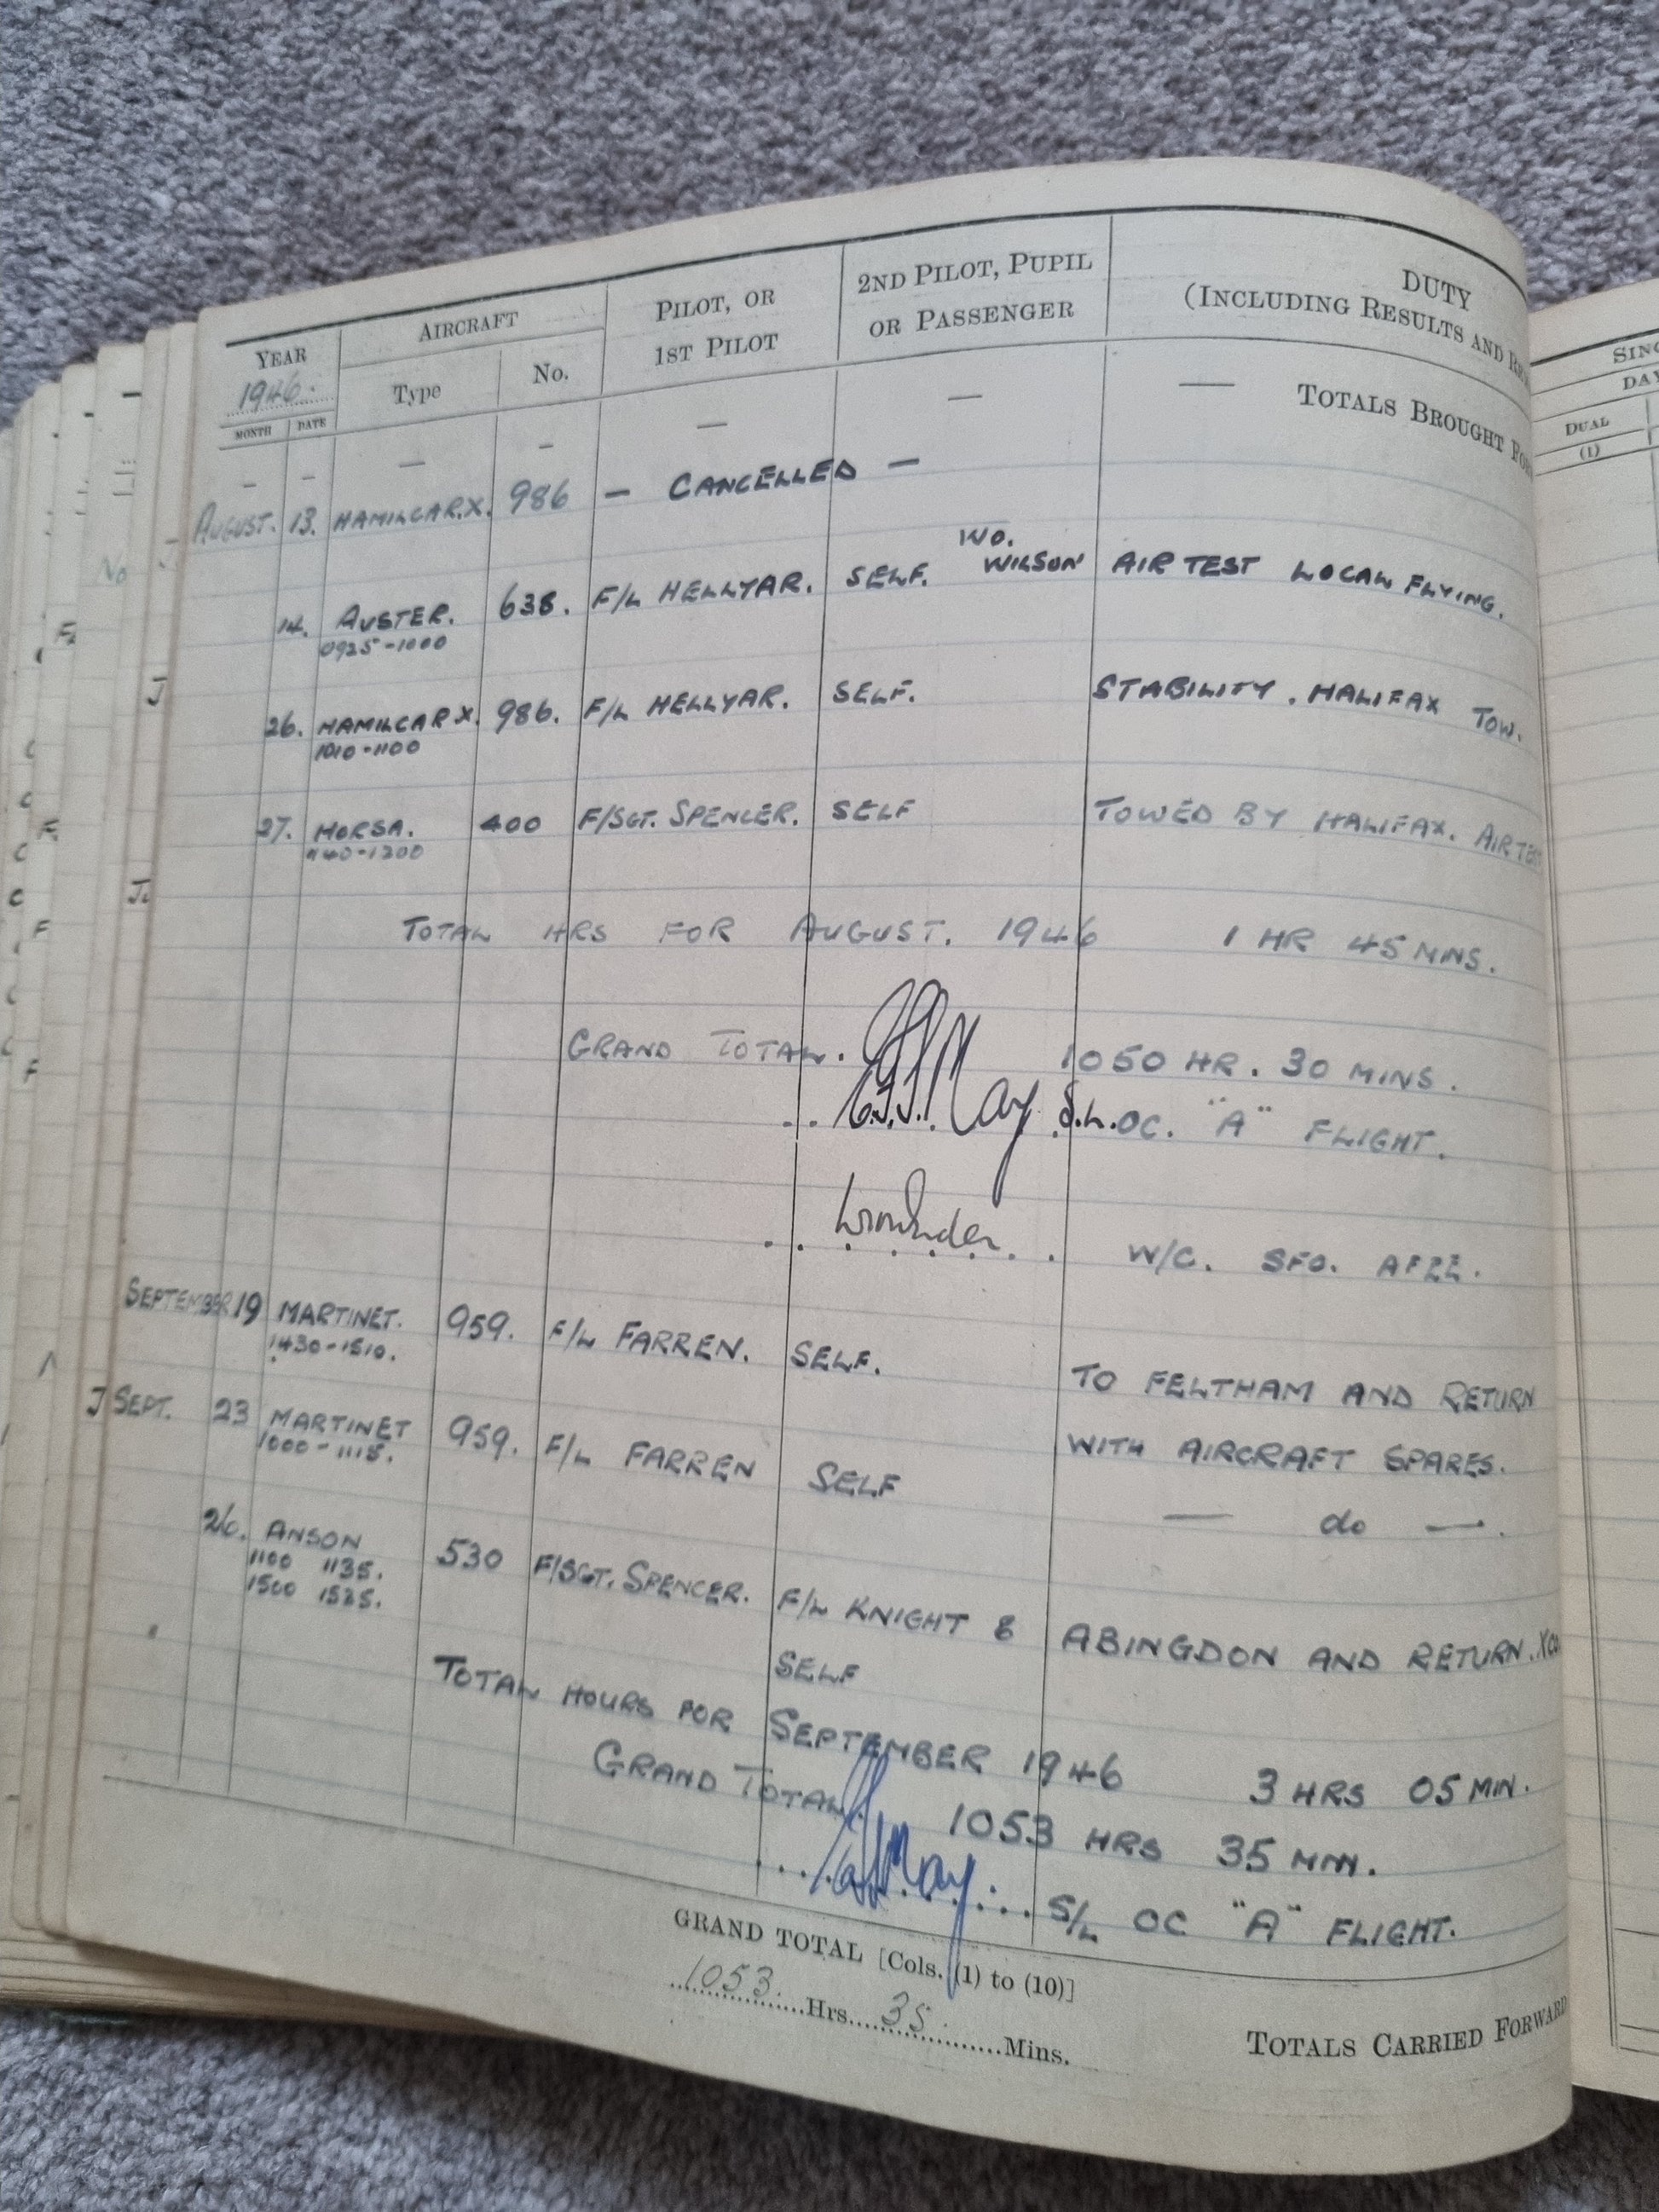 YEAR
1946.
AIRCRAFT
PILOT, OR
1ST PILOT
2ND PILOT, PUPIL
OR PASSENGER
DUTY
(INCLUDING RESULTS AND
MONTH DATE Type No.
— — — — — — — TOTALS BROUGHT
AUGUST. 13. HAMILCAR.X. 986 — CANCELLED —
14. AUSTER. 638. F/L HELLYAR. SELF. WO. WILSON AIR TEST LOCAL FLYING.
0925-1000
26. HAMILCAR X. 986. F/L HELLYAR. SELF. STABILITY. HALIFAX TOW.
1010-1100
27. HORSA. 400 F/SGT. SPENCER. SELF TOWED BY HALIFAX. AIR TEST
1140-1200
TOTAL HRS FOR AUGUST. 1946 1 HR 45 MINS.
GRAND TOTAL. 1050 HR. 30 MINS.
May S.L. OC. "A" FLIGHT.
W/C. SFO. AFEE.
SEPTEMBER 19 MARTINET. 959. F/L FARREN. SELF. TO FELTHAM AND RETURN
1430-1510.
WITH AIRCRAFT SPARES.
SEPT. 23 MARTINET 959. F/L FARREN SELF — do —.
1000-1115.
26. ANSON 530 F/SGT. SPENCER. F/L KNIGHT & SELF ABINGDON AND RETURN.
1100 1135.
1500 1535.
TOTAL HOURS FOR SEPTEMBER 1946 3 HRS 05 MIN.
GRAND TOTAL. 1053 HRS 35 MIN.
May S/L OC "A" FLIGHT.
GRAND TOTAL [Cols. (1) to (10)]
1053 Hrs. 35 Mins.
TOTALS CARRIED FORWARD
DUAL
(1)